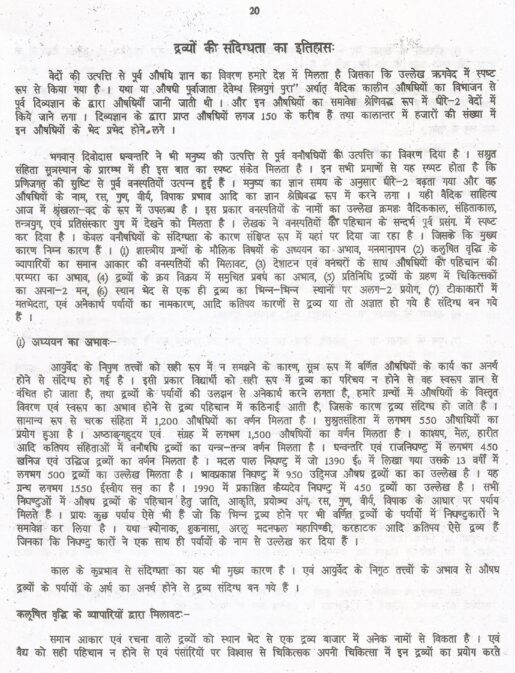 20
द्रव्यों की संदिग्धता का इतिहासः
वेदों की उत्पत्ति से पूर्व औषधि ज्ञान का विवरण हमारे देश में मिलता है जिसका कि उल्लेख ऋगवेद में स्पष्ट
रूप से किया गया है । यथा या औषधी पूर्वाजाता देवेम्य स्त्रियुगं पुरा" अर्थात् वैदिक कालीन औषधियों का विभाजन से
पूर्व दिव्यज्ञान के द्वारा औषधियाँ जानी जाती थी । और इन औषधियों का समावेश श्रेणिवद्ध रूप में धीरे-2 वेदों में
किये जाने लगा । दिव्यज्ञान के द्वारा प्राप्त औषधियाँ लगज 150 के करीब हैं तथा कालान्तर में हजारों की संख्या में
इन औषधियों के भेद प्रभेद होने लगे ।
भगवान् दिवोदास धन्वन्तरि ने भी मनुष्य की उत्पत्ति से पूर्व वनौषधियों की उत्पत्ति का विवरण दिया है । सश्रुत
संहिता सूत्रस्थान के प्रारम्भ में ही इस बात का स्पष्ट संकेत मिलता है । इन सभी प्रमाणों से यह स्पष्ट होता है कि
प्रणिजगत् की सृष्टि से पूर्व वनस्पतियाँ उत्पन्न हुई हैं । मनुष्य का ज्ञान समय के अनुसार धीरे-2 बढ़ता गया और वह
औषधियों के नाम, रस, गुण, वीर्य, विपाक प्रभाव आदि का ज्ञान श्रेणिवद्ध रूप में करने लगा । यही वैदिक साहित्य
आज में श्रृंखला-वद के रूप में उपलब्ध है । इस प्रकार वनस्पतियों के नामों का उल्लेख क्रमशः वैदिककाल, संहिताकाल,
तन्त्रयुग, एवं प्रतिसंस्कार युग में देखने को मिलता है । लेखक ने वनस्पतियों की पहिचान के सन्दर्भ पूर्व प्रसंग में स्पष्ट
कर दिया है । केवल वनौषधियों के संदिग्धता के कारण संक्षिप्त रूप में यहां पर दिया जा रहा है । जिसके कि मुख्य
कारण निम्न कारण हैं । (1) शास्त्रीय ग्रन्थों के मौलिक विषयों के अध्ययन का अभाव, मनमानापन (2) कलुषित वृद्धि के
व्यापारियों का समान आकार की वनस्पतियों की मिलावट, (3) देशाटन एवं वनंचरों के साथ औषधियों की पहिचान की
परम्परा का अभाव, (4) द्रव्यों के क्रय विक्रय में समुचित प्रबंध का अभाव, (5) प्रतिनिधि द्रव्यों के ग्रहण में चिकित्सकों
का अपना-2 मन, (6) स्थान भेद से एक ही द्रव्य का भिन्न-भिन्न स्थानों पर अलग-2 प्रयोग, (7) टीकाकारों में
मतभेदता, एवं अनेकार्थ पर्यायों का नामकरण, आदि कतिपय कारणों से द्रव्य या तो अज्ञात हो गये है संदिग्ध बन गये
हैं ।
(i) अध्ययन का अभावः-
आयुर्वेद के निगुण तत्त्वों को सही रूप में न समझने के कारण, सूत्र रूप में वर्णित औषधियों के कार्य का अनर्थ
होने से संदिग्ध हो गई है । इसी प्रकार विद्यार्थी को सही रूप में द्रव्य का परिचय न होने से वह स्वरूप ज्ञान से
वंचित हो जाता है, तथा द्रव्यों के पर्यायों की उलझन से अनेकार्थ करने लगता है, हमारे ग्रंन्थों में औषधियों के विस्तृत
विवरण एवं स्वरूप का अभाव होने से द्रव्य पहिचान में कठिनाई आती है, जिसके कारण द्रव्य संदिग्ध हो जाते है ।
सामान्य रूप से चरक संहिता में 1,200 औषधियों का वर्णन मिलता है । सुश्रुतसंहिता में लगभग 550 औषाधियों का
प्रयोग हुआ है । अष्ठाङ्गहृदय एवं संग्रह में लगभग 1,500 औषधियों का वर्णन मिलता है । काश्यप, मेल, हारीत
आदि कतिपय संहिताओं में वनौषधि द्रव्यों का यन्त्र-तन्त्र वर्णन मिलता है । धन्वन्तरि एवं राजनिघण्टु में लगभग 450
खनिज एवं उद्भिज द्रव्यों का वर्णन मिलता है । मदल पाल निघण्टु में जो 1390 ई० में लिखा गया उसके 13 वर्गों में
लगभग 500 द्रव्यों का उल्लेख मिलता है । भावप्रकाश निघण्टु में 950 उद्विमज औषध द्रव्यों का का उल्लेख है । यह
ग्रन्थ लगभग 1550 ईस्वीय सन् का है । 1990 में प्रकाशित कैय्यदेव निघण्टु में 450 द्रव्यों का उल्लेख है । सभी
निघण्टुओं में औषध द्रव्यों की पहचान हेतु जाति, आकृति, प्रयोज्य अंग, रस, गुण, वीर्य, विपाक के आधार पर पर्याय
मिलते हैं । प्रायः कुछ पर्याय ऐसे भी हैं जो कि भिन्न द्रव्य होने पर भी वर्णित द्रव्यों के पर्यायों में निघण्टुकारों ने
समावेश कर लिया है । यथा श्योनाक, शुकनासा, अरलू मदनफल महापिण्डी, करहाटक आदि क्रतिपय ऐसे द्रव्य हैं
जिनका कि निघण्टु कारों ने एक साथ ही पर्यायों के नाम से उल्लेख कर दिया हैं ।
काल के कुप्रभाव से संदिग्धता का यह भी मुख्य कारण है । एवं आयुर्वेद के निगूढ तत्त्वों के अभाव से औषध
द्रव्यों के पर्यायों के अर्थ का अनर्थ होने से द्रव्य संदिग्ध बन गये हैं ।
कलूषित वृद्धि के व्यापारियों द्वारा मिलावटः-
समान आकार एवं रचना वाले द्रव्यों को स्थान भेद से एक द्रव्य बाजार में अनेक नामों से विकता है । एवं
वैद्य को सही पहिचान न होने से एवं पंसारियों पर विश्वास से चिकित्सक अपनी चिकित्सा में इन द्रव्यों का प्रयोग करते